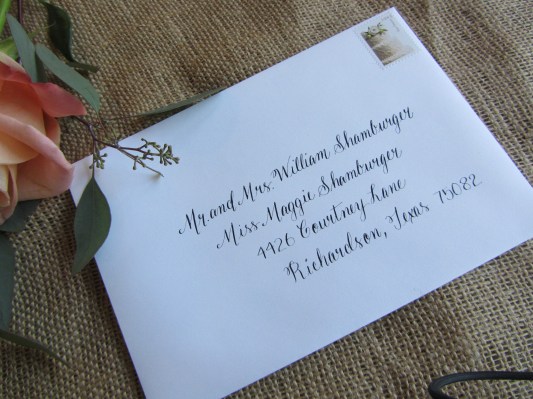 Mr. and Mrs. William Shamburger
Miss Maggie Shamburger
1426 Courtney Lane
Richardson, Texas 75082